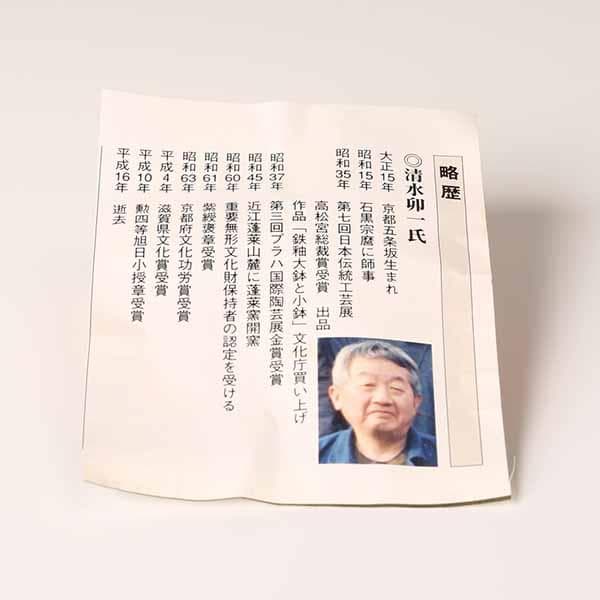 略歴
◎清水卯一氏
大正15年 京都五条坂生まれ
昭和15年 石黒宗麿に師事
昭和35年 第七回日本伝統工芸展
高松宮総裁賞受賞 出品
作品「鉄釉大鉢と小鉢」文化庁買い上げ
昭和37年 第三回プラハ国際陶芸展金賞受賞
昭和45年 近江蓬莱山麓に蓬莱窯開窯
昭和60年 重要無形文化財保持者の認定を受ける
昭和61年 紫綬褒章受賞
昭和63年 京都府文化功労賞受賞
平成4年 滋賀県文化賞受賞
平成10年 勲四等旭日小授章受賞
平成16年 逝去